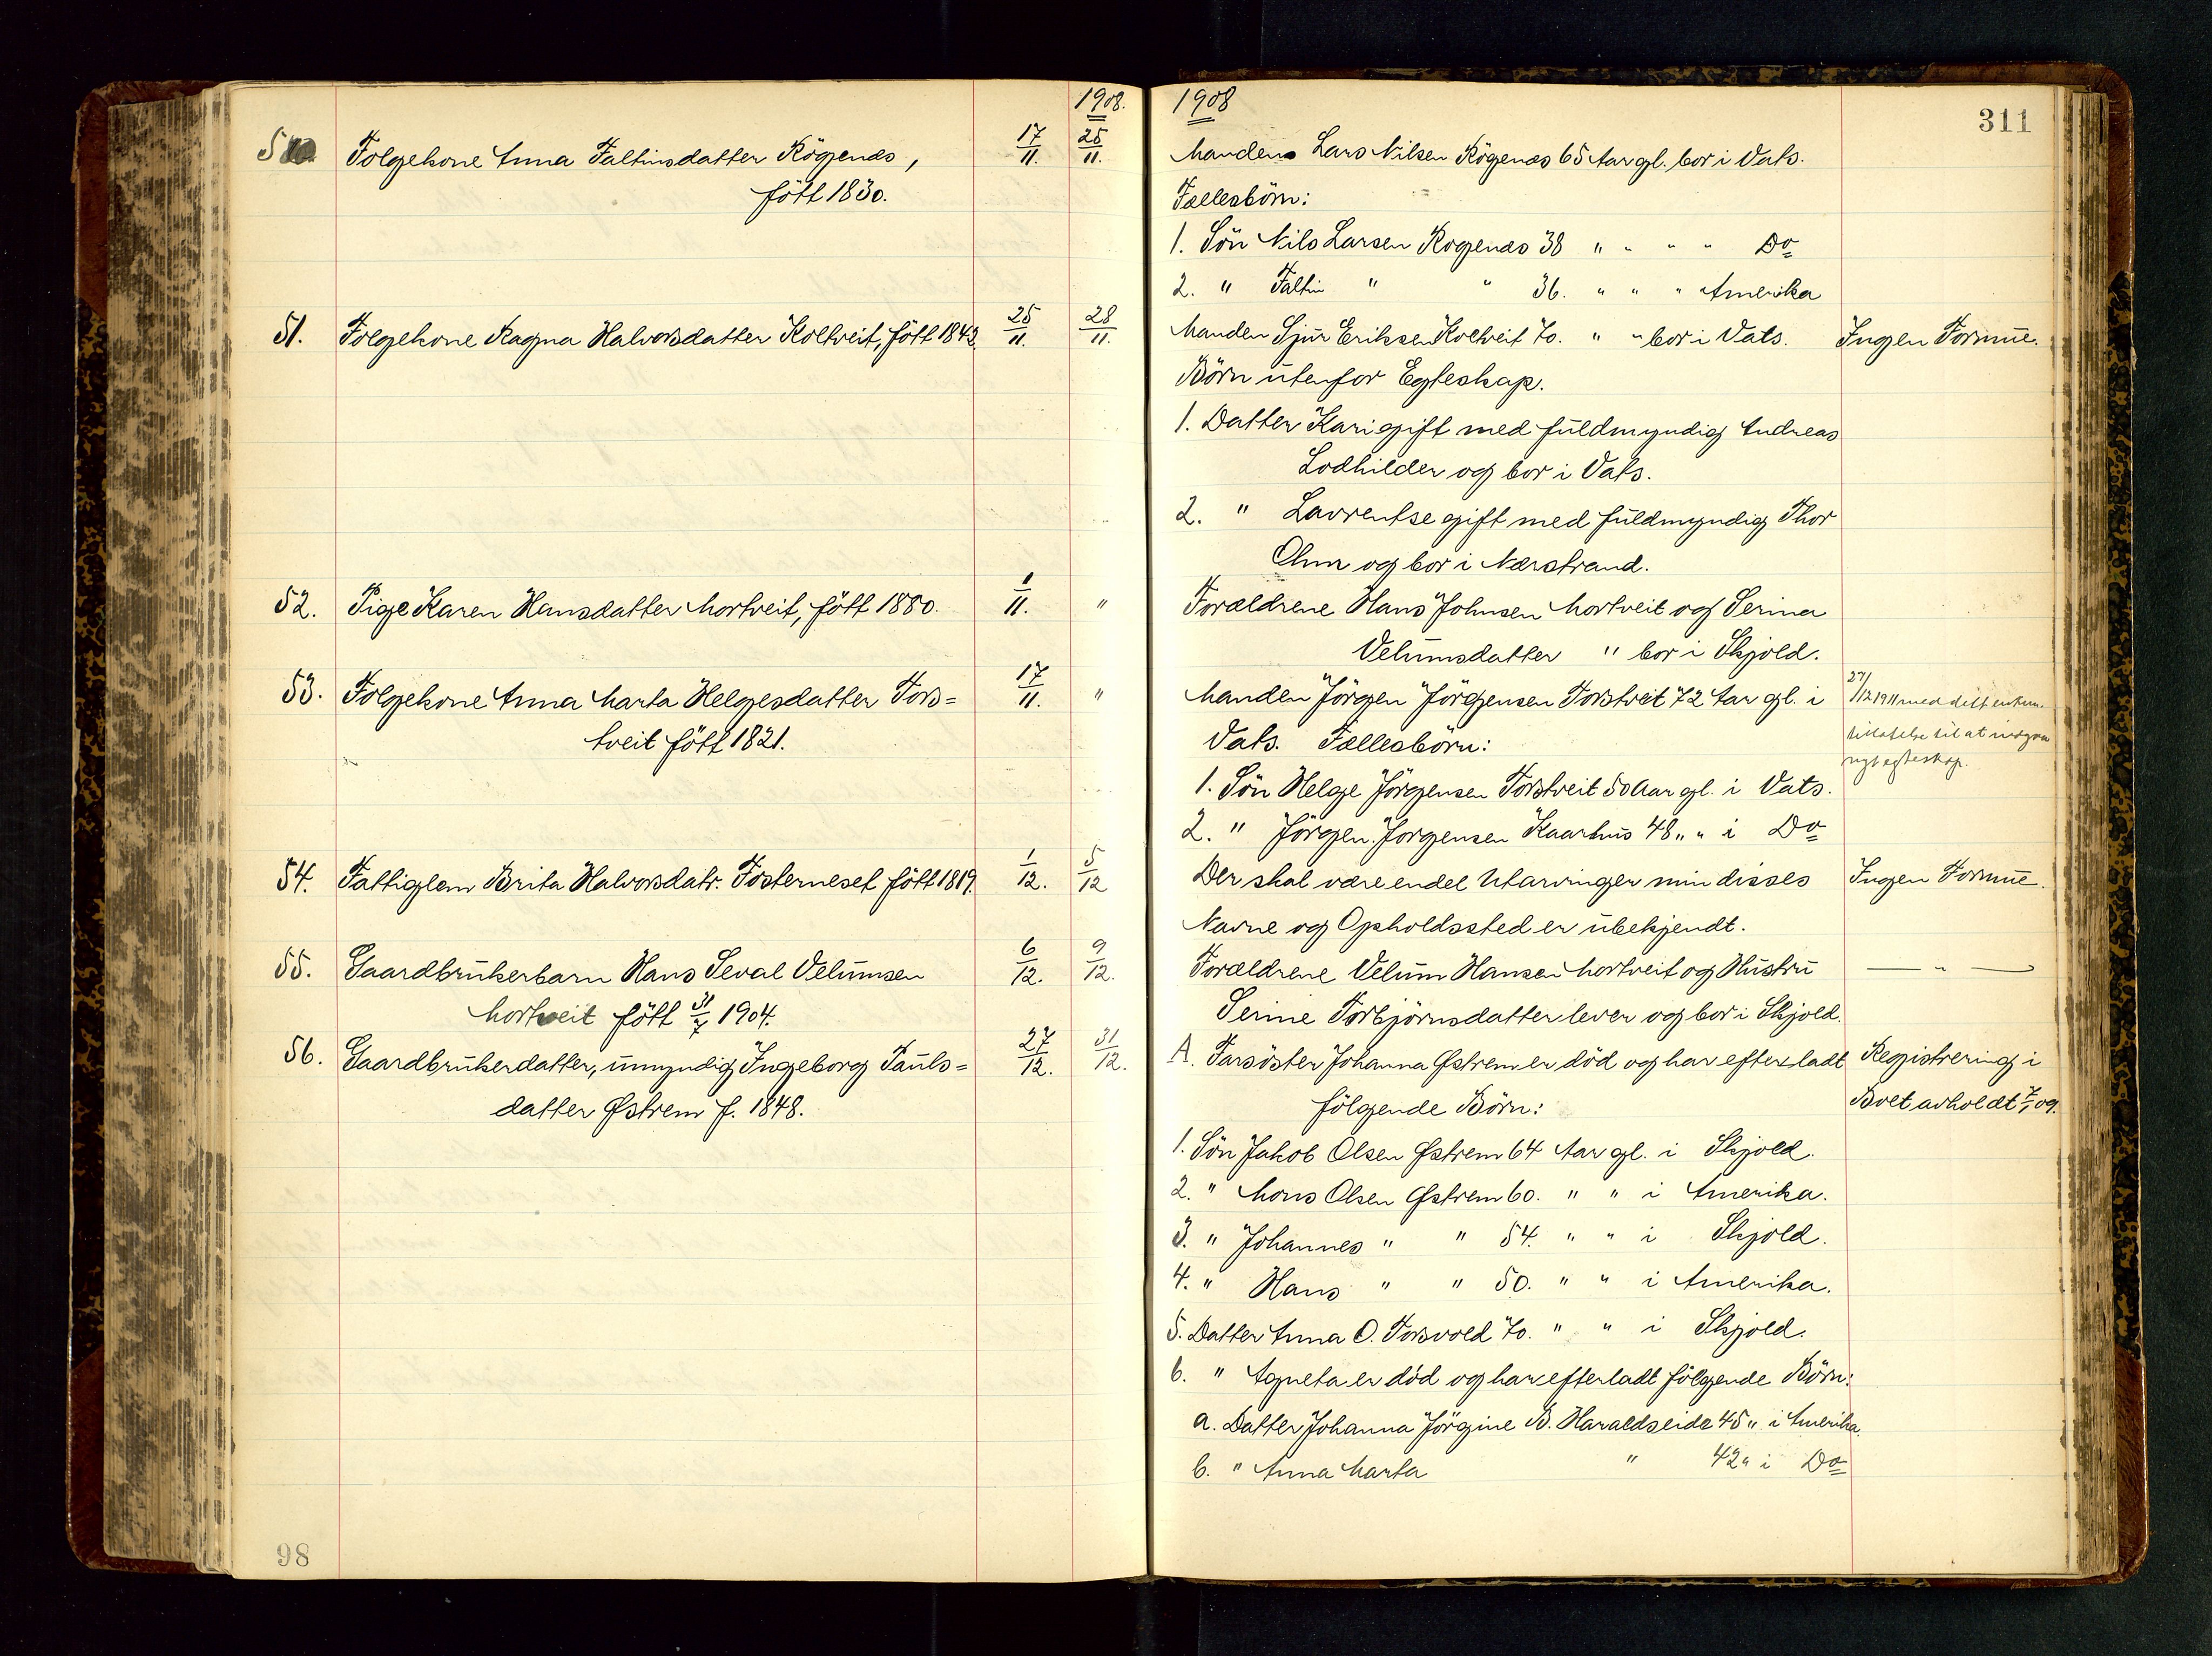 1908.
50 Folgekone Anna Faltinsdatter Rögenes, 17/11. 25/11.
född 1830.
51. Folgekone Ragna Halvorsdatter Koltveit, född 1843. 25/11. 28/11.
52. Pige Karen Hansdatter Mortveit, född 1880. 1/11. "
53. Folgekone Anna Marta Helgesdatter Tors=
tveit född 1821. 17/11. "
54. Fattiglem Brita Halvorsdatr. Fosterneset född 1819. 1/12. 5/12
55. Gaardbrukerbarn Hans Seval Velumsen 6/12. 9/12.
Mortveit född 31/7 1904.
56. Gaardbrukerdatter, umyndig Ingeborg Pauls= 27/12. 31/12.
datter Østrem f. 1848.
98
1908
311
Manden Lars Nilsen Rögenes 65 Aar gl. bor i Vats.
Fællesbörn:
1. Sön Nils Larsen Rogenes 38 " " " " Do
2. " Faltin " " 36. " " " Amerika
Manden Sjur Eriksen Koltveit 70. " " bor i Vats. Ingen Formue.
Börn utenfor Egteskap.
1. Datter Kari gift med fuldmyndig Andreas
Lodhilder og bor i Vats.
2. " Lavrentse gift med fuldmyndig Thor
Ohm og bor i Nærstrand.
Forældrene Hans Johnsen Mortveit og Serina
Velumsdatter " bor i Skjold.
Manden Jörgen Jörgensen Torstveit 72 Aar gl. i
Vats. Fællesbörn:
27/12 1911 meddelt enkem.
tilladelse til at indgaa
nyt egteskap.
1. Sön Helge Jörgensen Torstveit 50 Aar gl. i Vats.
2. " Jörgen Jorgensen Kaarhus 48 " " i Do
Der skal være endel Utarvinger min disses Ingen Formue.
Navne og Opholdssted er ubekjendt.
Forældrene Velum Hansen Mortveit og Hustru — " —
Serine Torbjörnsdatter lever og bor i Skjold.
A. Farsöster Johanna Østrem er död og har efterladt Registrering i
følgende Börn: Boet avholdt 7/1 09.
1. Sön Jakob Olsen Østrem 64 Aar gl. i Skjold.
2. " Mons Olsen Østrem 60. " " i Amerika.
3. " Johannes " " 54. " " i Skjold.
4. " Hans " " 50. " " i Amerika.
5. Datter Anna O. Forsvold 70. " " i Skjold.
6. " Agneta er död og har efterladt fölgende Börn:
a. Datter Johanna Jörgine B. Haraldseide 45 " i Amerika.
b. " Anna Marta " 42 " i Do